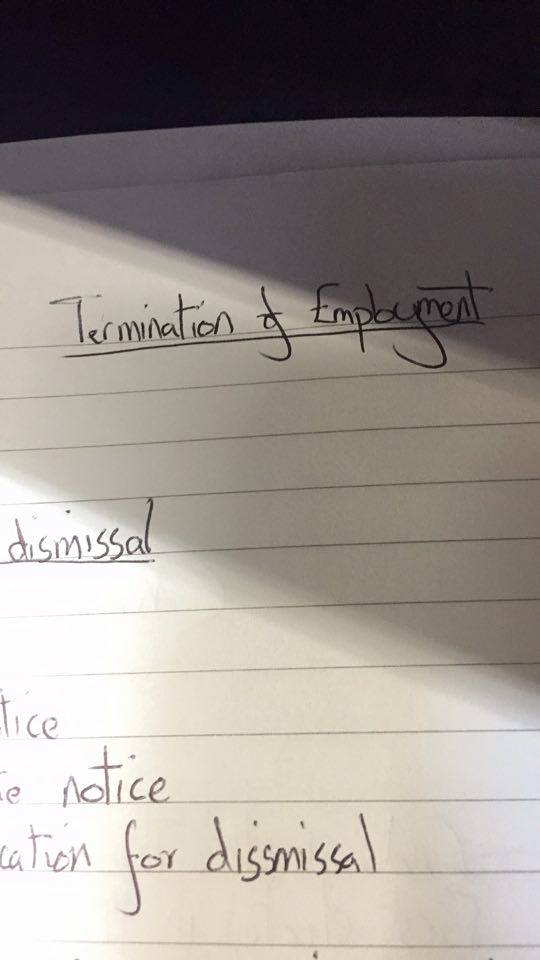 Termination of Employment
dismissal
tice
notice
cation for dissmissal